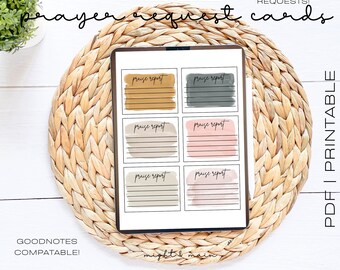 REQUESTS!
prayer request cards
praise report
praise report
praise report
praise report
praise report
praise report
PDF | PRINTABLE
GOODNOTES
COMPATABLE!
might & main